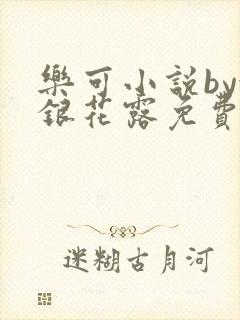 樂可小説by
銀花露免費
迷糊古月河